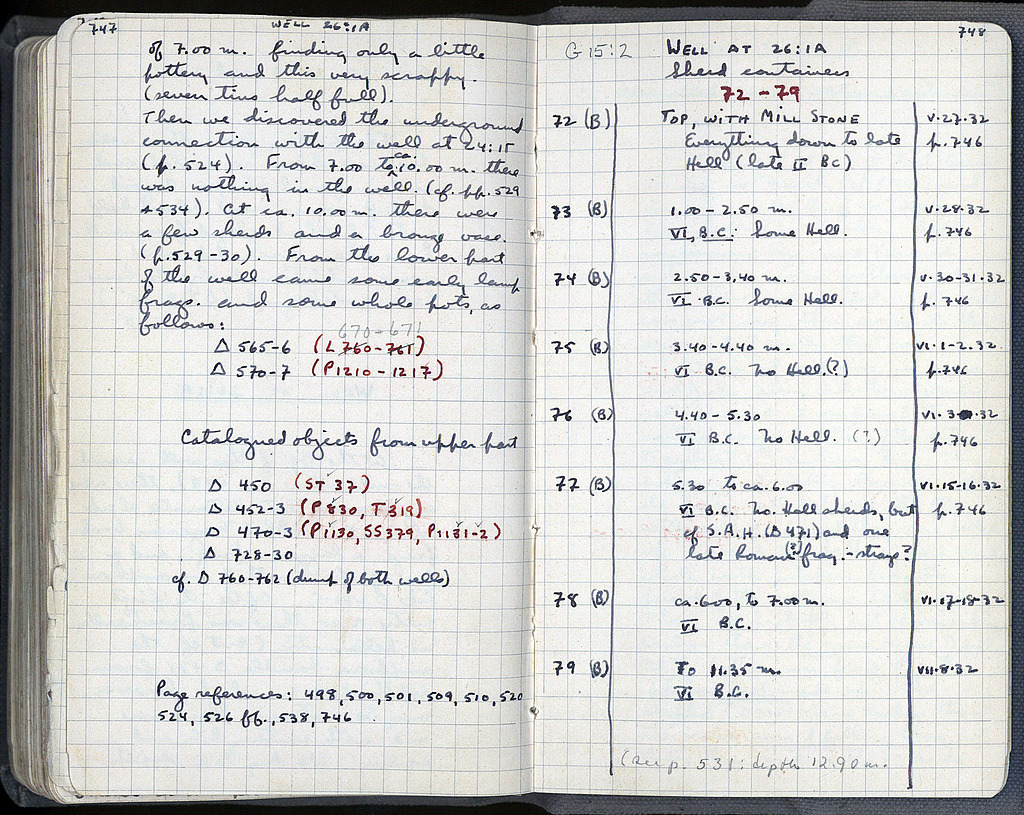 747
WELL 26:1A
of 7.00 m. finding only a little
pottery and this very scrappy.
(seven tins half full).
Then we discovered the underground
connection with the well at 24:15
(p. 524). From 7.00 to ca. 10.00 m. there
was nothing in the well. (cf. pp. 529
+ 534). At ca. 10.00 m. there were
a few sherds and a bronze vase.
(p. 529-30). From the lower part
of the well came some early lamp
frags. and some whole pots, as
follows:
670-671
Δ 565-6 (L 760-761)
Δ 570-7 (P1210-1217)
Catalogued objects from upper part
Δ 450 (ST 37)
Δ 452-3 (P 830, T 319)
Δ 470-3 (P1130, SS379, P1131-2)
Δ 728-30
cf. Δ 760-762 (dump of both wells)
Page references: 498, 500, 501, 509, 510, 520
524, 526 ff., 538, 746
748
G 15:2 WELL AT 26:1A
Sherd containers
72-79
72 (B) TOP, WITH MILL STONE V-27-32
Everything down to late p. 746
Hell (late II BC)
73 (B) 1.00-2.50 m. V-28-32
VI, B.C. Some Hell. p. 746
74 (B) 2.50-3.40 m. V-30-31-32
VI B.C. Some Hell. p. 746
75 (B) 3.40-4.40 m. VI-1-2-32
VI B.C. No Hell.(?) p. 746
76 (B) 4.40-5.30 VI-3-32
VI B.C. No Hell. (?) p. 746
77 (B) 5.30 to ca. 6.00 VI-15-16-32
VI B.C. No Hell sherds, but p. 746
cf S.A.H. (Δ 471) and one
late Roman (?) frag. - strays?
78 (B) ca. 6.00, to 7.00 m. VI-17-18-32
VI B.C.
79 (B) To 11.35 m. VII-8-32
VI B.C.
(see p. 531: depth 12.90 m.